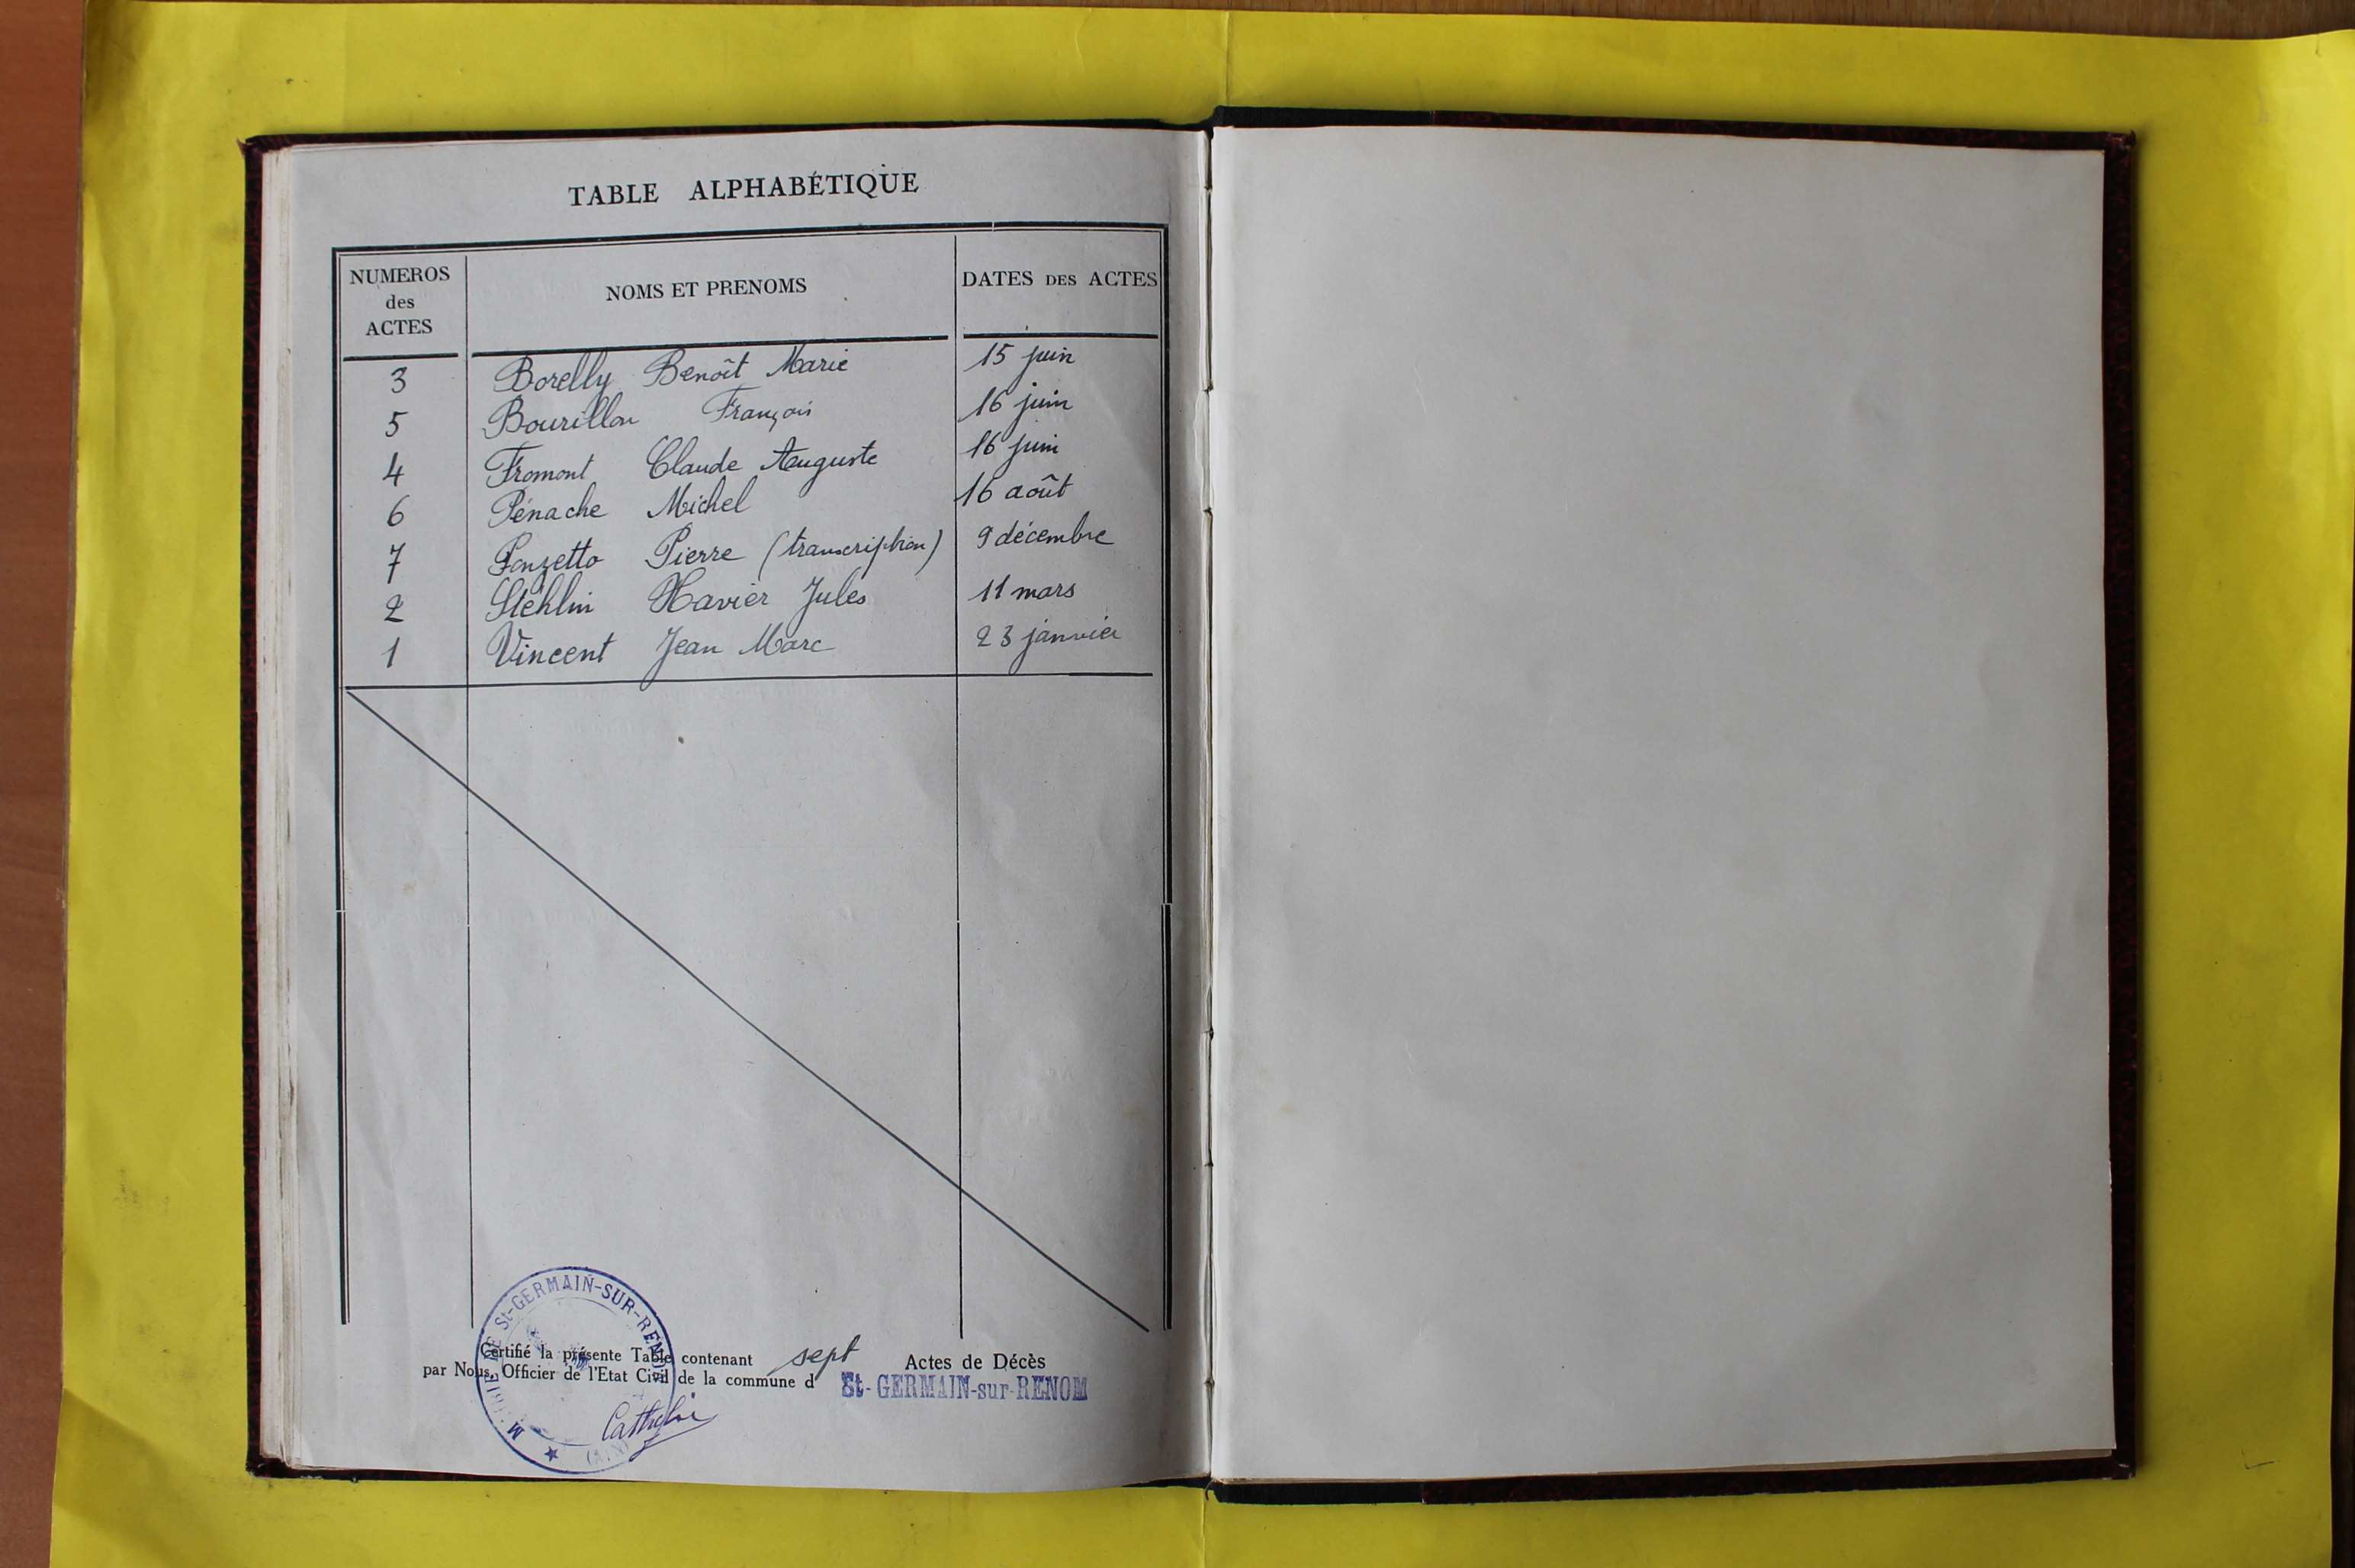 TABLE ALPHABÉTIQUE
NUMEROS des ACTES NOMS ET PRENOMS DATES DES ACTES
3 Borelly Benoît Marie 15 juin
5 Bourillon François 16 juin
4 Fromont Claude Auguste 16 juin
6 Pénache Michel 16 août
7 Ponzetto Pierre (transcription) 9 décembre
2 Stéhlin Xavier Jules 11 mars
1 Vincent Jean Marc 23 janvier
Certifié la présente Table contenant sept Actes de Décès
par Nous, Officier de l'Etat Civil de la commune d St-GERMAIN-sur-RENOM
St-GERMAIN-SUR-RENOM